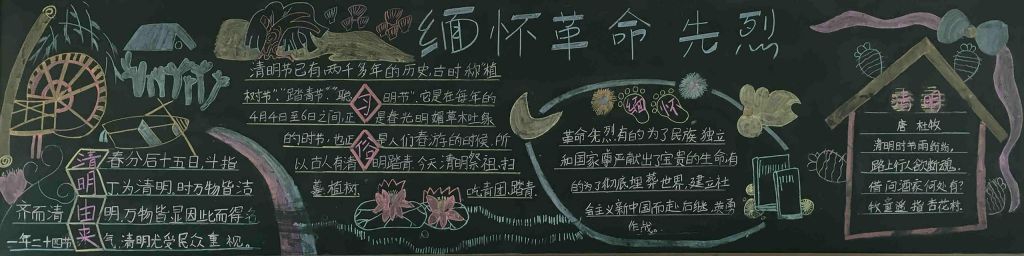 缅怀革命先烈
清明由来
春分后十五日,斗指
丁为清明,时万物皆洁
齐而清明,万物皆显因此而得名
一年二十四节气,清明尤受民众重视。
习俗
清明节已有两千多年的历史,古时称"植
树节","踏青节""聪明节",它是在每年的
4月4日至6日之间,正是春光明媚草木吐绿
的时节,也正是人们春游的时候,所
以古人有清明踏青今天,清明祭祖,扫
墓植树 吃青团,踏青
缅怀
革命先烈,有的为了民族独立
和国家尊严献出了宝贵的生命,有
的为了彻底埋葬世界,建立社
会主义新中国而赴后继,英勇
作战。
清明
唐 杜牧
清明时节雨纷纷,
路上行人欲断魂。
借问酒家何处有?
牧童遥指杏花村。